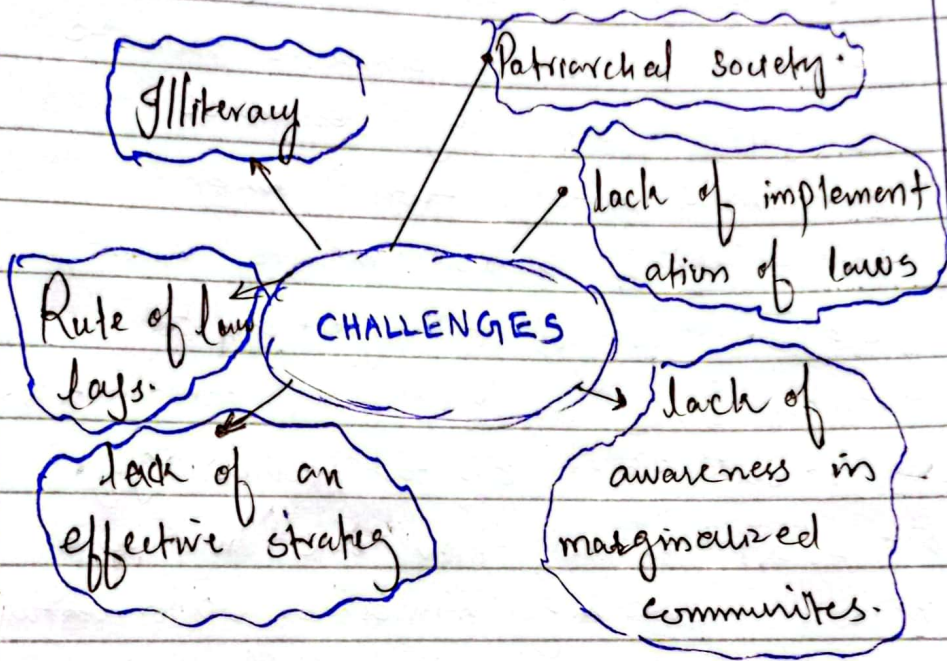 Patriarchal society.
Illiteracy
lack of implement
ation of laws
Rule of law
lags.
CHALLENGES
lack of
awareness in
marginalized
communites.
lack of an
effective strateg